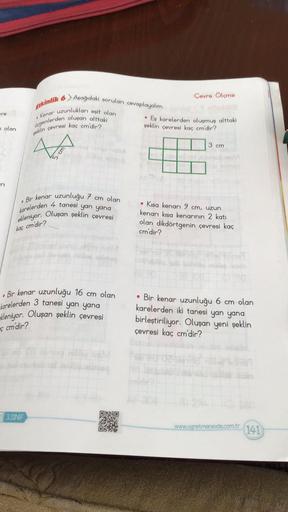 Çevre Ölçme
Etkinlik 6 > Aşağıdaki soruları cevaplayalım.
• Kenar uzunlukları eşit olan
üçgenlerden oluşan alttaki
şeklin çevresi kaç cm'dir?
• Eş karelerden oluşmuş alttaki
şeklin çevresi kaç cm'dir?
3 cm
olan
• Bir kenar uzunluğu 7 cm olan
karelerden 4 tanesi yan yana
ekleniyor. Oluşan şeklin çevresi
kaç cm'dir?
• Kısa kenarı 9 cm, uzun
kenarı kısa kenarının 2 katı
olan dikdörtgenin çevresi kaç
cm'dir?
• Bir kenar uzunluğu 16 cm olan
karelerden 3 tanesi yan yana
ekleniyor. Oluşan şeklin çevresi
ç cm'dir?
• Bir kenar uzunluğu 6 cm olan
karelerden iki tanesi yan yana
birleştiriliyor. Oluşan yeni şeklin
çevresi kaç cm'dir?
3.SINIF
www.ogretmenevde.com.tr
141